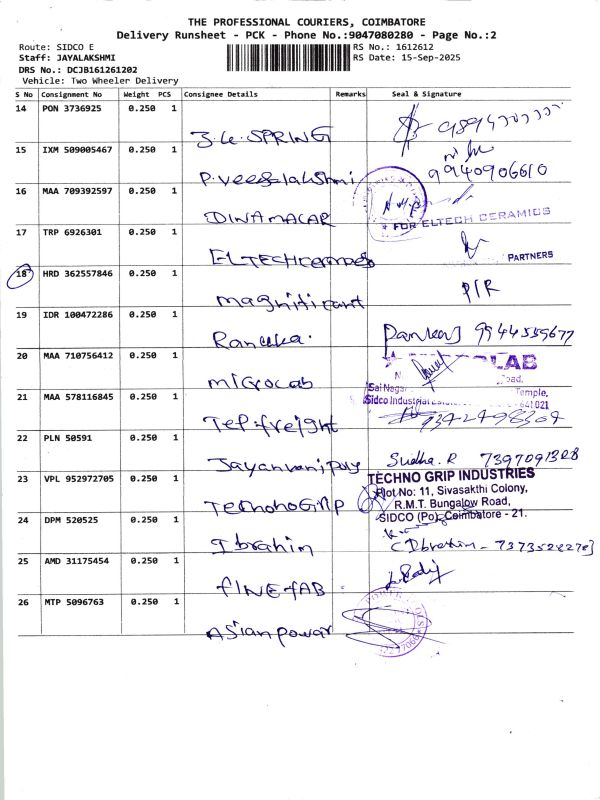 THE PROFESSIONAL COURIERS, COIMBATORE
Delivery Runsheet - PCK - Phone No.:9047080280 - Page No.:2
Route: SIDCO E
RS No.: 1612612
Staff: JAYALAKSHMI
RS Date: 15-Sep-2025
DRS No.: DCJB161261202
Vehicle: Two Wheeler Delivery
S No Consignment No Weight PCS Consignee Details Remarks Seal & Signature
14 PON 3736925 0.250 1
SPRING
15 IXM 509005467 0.250 1
9940906610
16 MAA 709392597 0.250 1
DINAMALAR
FOR ELTECH CERAMICS
17 TRP 6926301 0.250 1
PARTNERS
ELTECH
18 HRD 362557846 0.250 1
P/R
19 IDR 100472286 0.250 1
Ranuka. Pankaj 9944559677
20 MAA 710756412 0.250 1
LAB
microlab
Road,
Sai Nagar Temple,
21 MAA 578116845 0.250 1
Sidco Industrial 641 021
Tep freight
22 PLN 50591 0.250 1
Sudha. R 7397091328
23 VPL 952972705 0.250 1
TECHNO GRIP INDUSTRIES
Plot No: 11, Sivasakthi Colony,
R.M.T. Bungalow Road,
SIDCO (Po), Coimbatore - 21.
24 DPM 520525 0.250 1
Ibrahim
25 AMD 31175454 0.250 1
FINE FAB
26 MTP 5096763 0.250 1
Asian powar